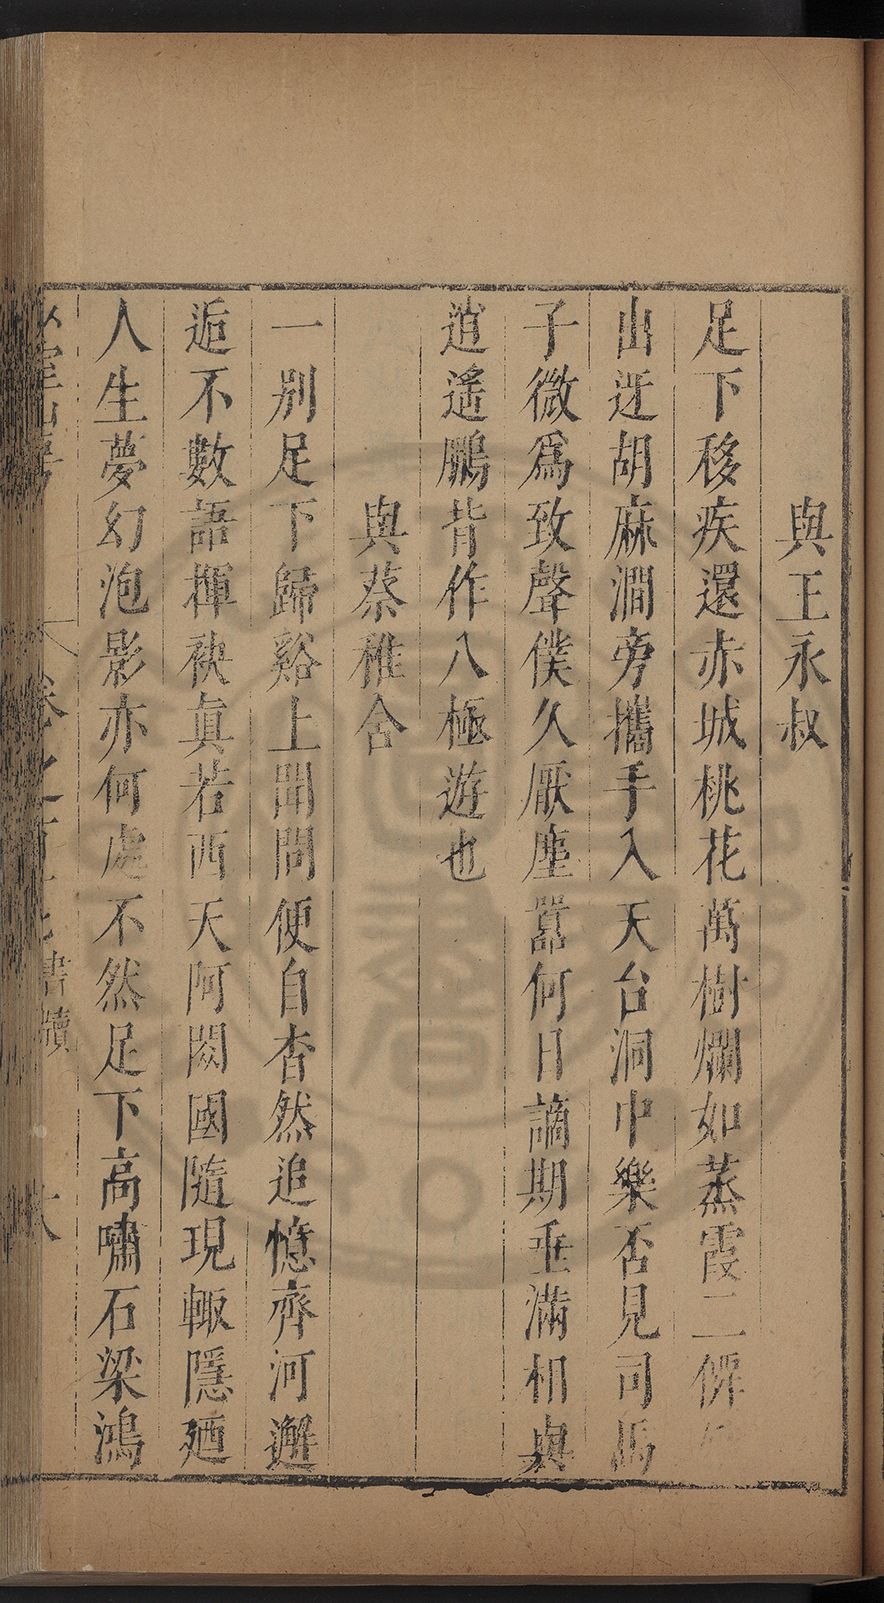 與王永叔
足下移疾還赤城桃花萬樹爛如蒸霞二僊
出迓胡麻澗旁攜手入天台洞中樂否見司馬
子微爲致聲僕久厭塵囂何日謫期垂滿相與
逍遙鵬背作八極遊也
與蔡稚含
一別足下歸谿上聞問便自杳然追憶齊河邂
逅不數語揮袂眞若西天阿閦國隨現輙隱廼
人生夢幻泡影亦何處不然足下高嘯石梁鴻
卷之百十 書牘